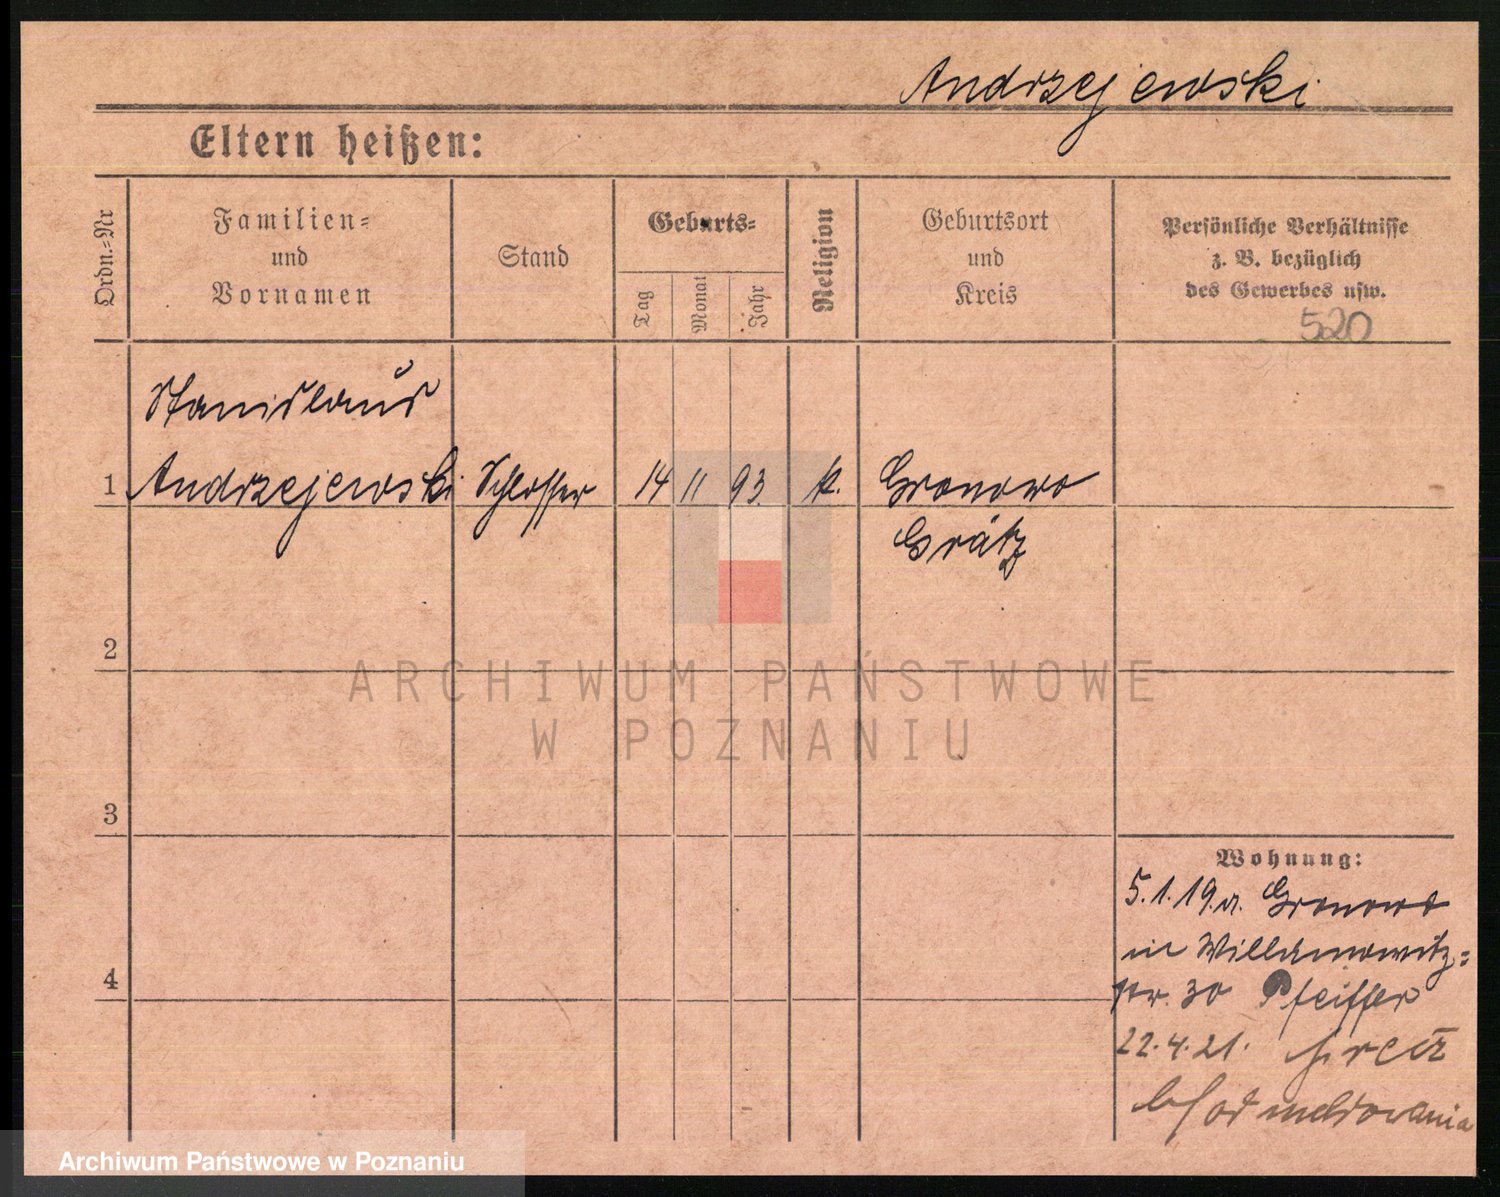 Andrzejewski
Eltern heißen:
Ordn.=Nr
Familien=
und
Vornamen
Stand
Geburts=
Tag
Monat
Jahr
Religion
Geburtsort
und
Kreis
Persönliche Verhältnisse
z. B. bezüglich
des Gewerbes usw.
520
Stanislaus
1 Andrzejewski Schlosser 14 11 93. k. Gronowo
Grätz
2
ARCHIWUM PAŃSTWOWE
W POZNANIU
3
Wohnung:
5.1.19. v. Gronowo
in Willamowitz=
str. 30 Pfeiffer
4
22.4.21.
meldowania
Archiwum Państwowe w Poznaniu